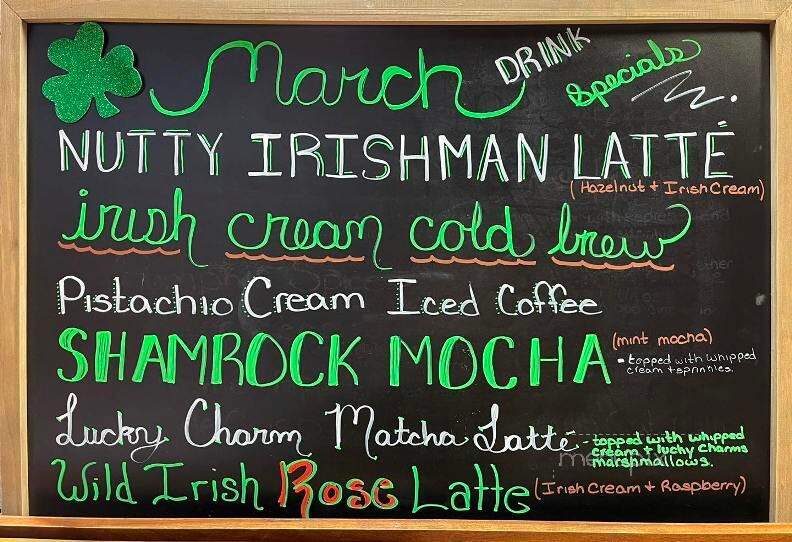 March DRINK Specials
NUTTY IRISHMAN LATTÉ
(Hazelnut + Irish Cream)
irish cream cold brew
Pistachio Cream Iced Coffee
SHAMROCK MOCHA (mint mocha)
• topped with whipped
cream + sprinkles.
Lucky Charm Matcha Latte - topped with whipped
cream + lucky charms
marshmallows.
Wild Irish Rose Latte (Irish Cream + Raspberry)